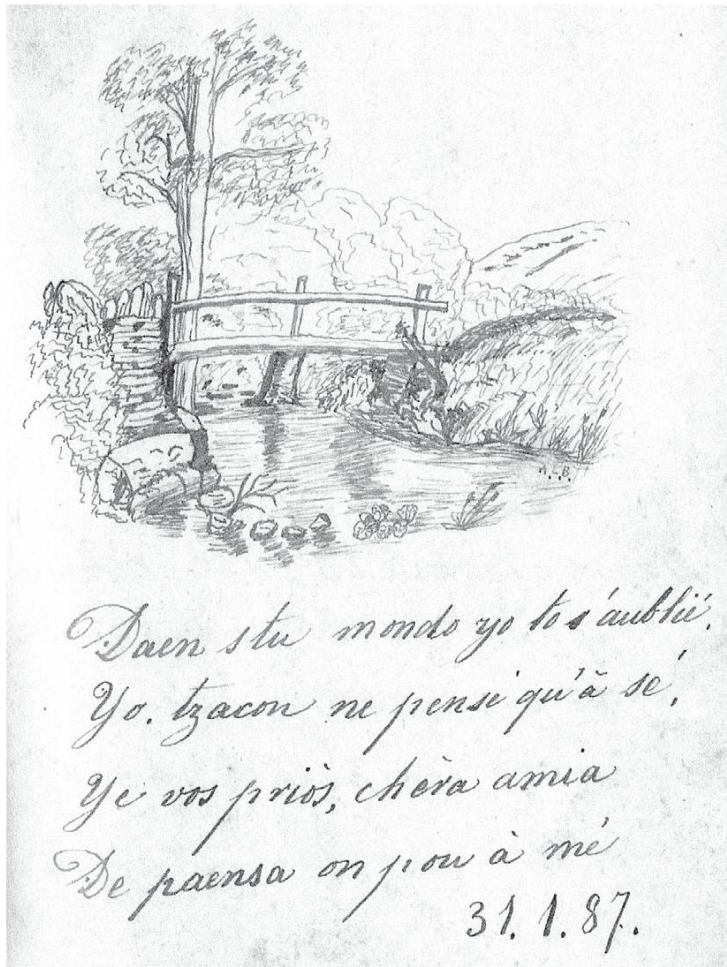 A. L. B.
Daen stu mondo yo to s'áublié,
Yo. tzacon ne pensé qu'à sé,
Ye vos priòs, chèra amia
De paensa on pou à mé
31. 1. 87.